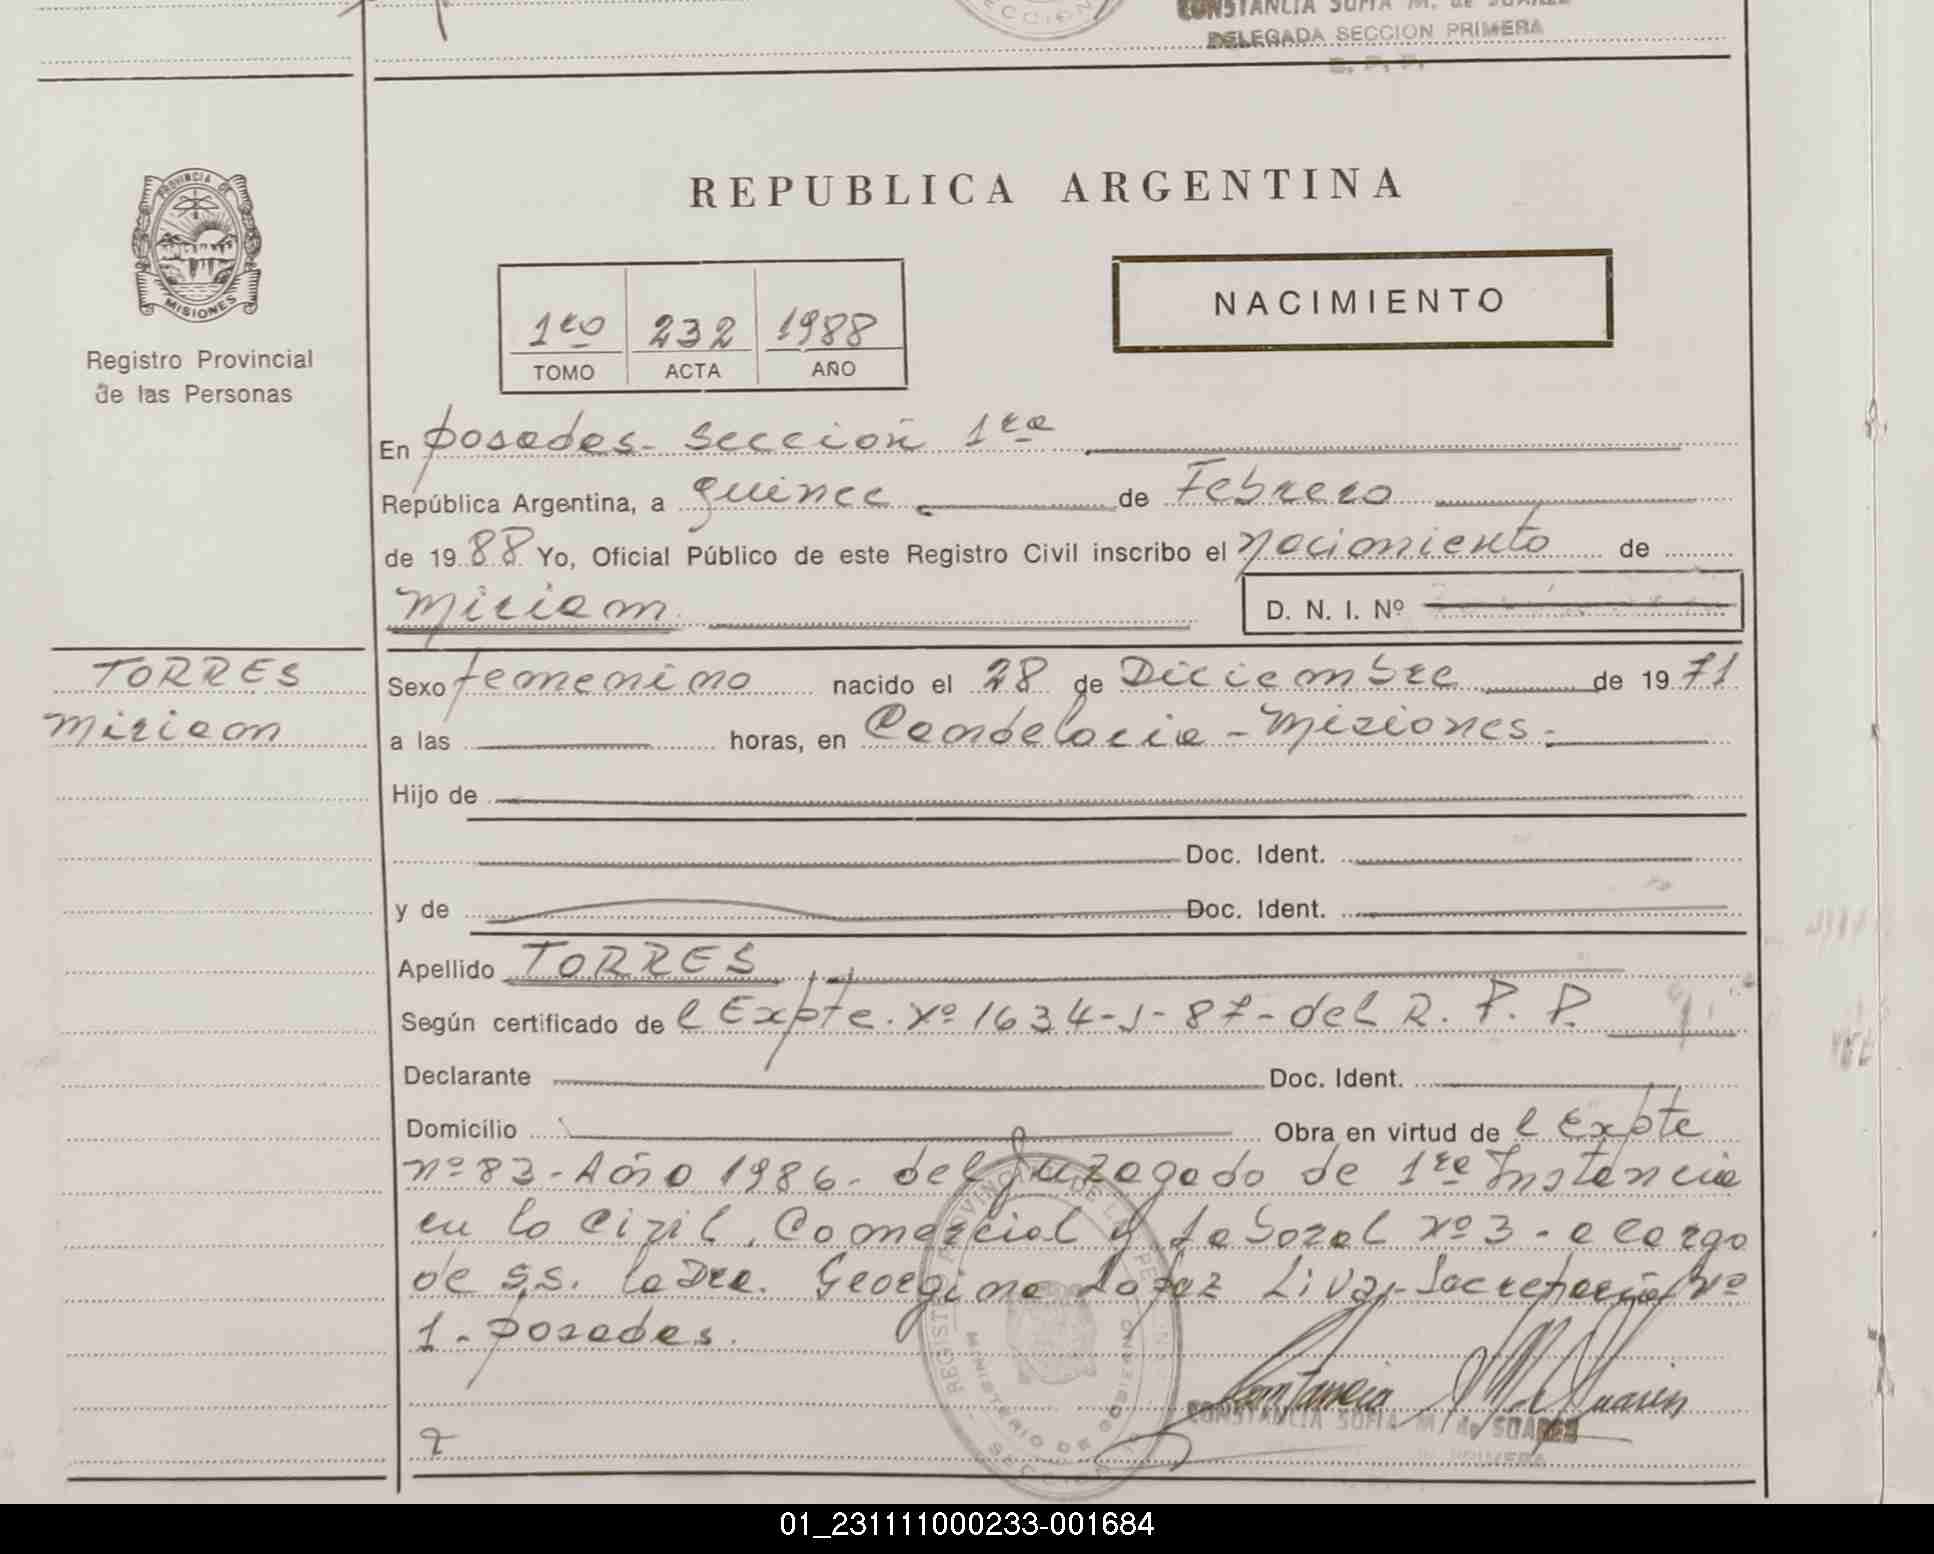 CONSTANCIA SOFIA M. de SUAREZ
DELEGADA SECCION PRIMERA
R. P. P.
PROVINCIA DE
MISIONES
Registro Provincial
de las Personas
REPUBLICA ARGENTINA
NACIMIENTO
1ro 232 1988
TOMO ACTA AÑO
En posadas - sección 1ra
República Argentina, a quince de Febrero
de 1988 Yo, Oficial Público de este Registro Civil inscribo el nacimiento de
Miriam
D. N. I. Nº
TORRES
Miriam
Sexo femenino nacido el 28 de Diciembre de 1971
a las horas, en Candelaria - Misiones.
Hijo de
Doc. Ident.
y de Doc. Ident.
Apellido TORRES
Según certificado del Expte. Nº 1634-J-87- del R. P. P.
Declarante Doc. Ident.
Domicilio Obra en virtud del Expte
nº 83 - Año 1986 - del Juzgado de 1ra Instancia
en lo Civil, Comercial y Laboral Nº 3 - a cargo
de S.S. la Dra. Georgina Lopez Liva, Secretaría Nº
1 - posadas.
CONSTANCIA SOFIA M. de SUAREZ
PRIMERA
REGISTRO PROVINCIAL DE LAS PERSONAS
MINISTERIO DE GOBIERNO
SECCION
01_231111000233-001684